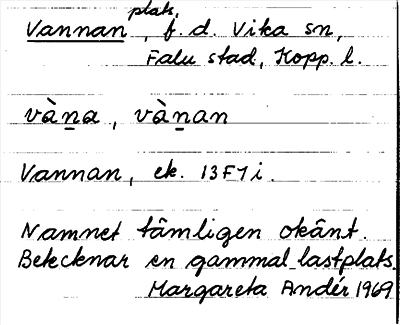 Vannan, plats, f. d. Vika sn,
Falu stad, Kopp. l.
vàṉa, vàṉan
Vannan, ek. 13F1i.
Namnet tämligen okänt.
Betecknar en gammal lastplats.
Margareta Andér 1969